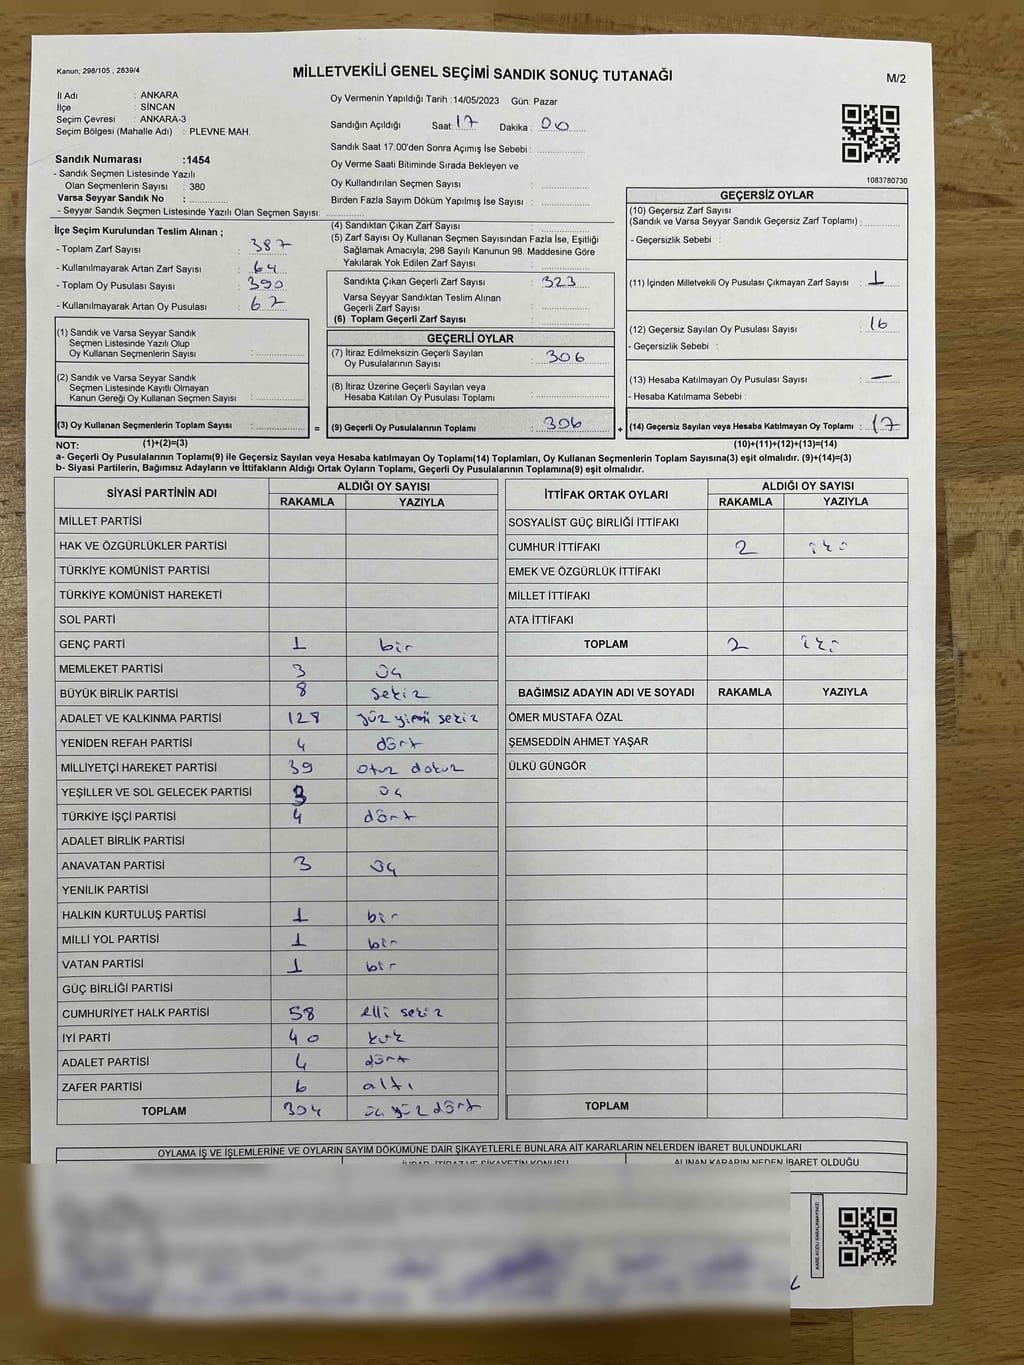 Kanun; 298/105 , 2839/4
MİLLETVEKİLİ GENEL SEÇİMİ SANDIK SONUÇ TUTANAĞI
M/2
İl Adı : ANKARA
İlçe : SİNCAN
Seçim Çevresi : ANKARA-3
Seçim Bölgesi (Mahalle Adı) : PLEVNE MAH.
Sandık Numarası :1454
- Sandık Seçmen Listesinde Yazılı
Olan Seçmenlerin Sayısı : 380
Varsa Seyyar Sandık No :
- Seyyar Sandık Seçmen Listesinde Yazılı Olan Seçmen Sayısı:
Oy Vermenin Yapıldığı Tarih :14/05/2023 Gün: Pazar
Sandığın Açıldığı Saat 17 Dakika : 00
Sandık Saat 17:00'den Sonra Açımış İse Sebebi :
Oy Verme Saati Bitiminde Sırada Bekleyen ve
Oy Kullandırılan Seçmen Sayısı :
Birden Fazla Sayım Döküm Yapılmış İse Sayısı :
1083780730
İlçe Seçim Kurulundan Teslim Alınan ;
- Toplam Zarf Sayısı : 387
- Kullanılmayarak Artan Zarf Sayısı : 64
- Toplam Oy Pusulası Sayısı : 390
- Kullanılmayarak Artan Oy Pusulası : 67
(1) Sandık ve Varsa Seyyar Sandık
Seçmen Listesinde Yazılı Olup
Oy Kullanan Seçmenlerin Sayısı :
(2) Sandık ve Varsa Seyyar Sandık
Seçmen Listesinde Kayıtlı Olmayan
Kanun Gereği Oy Kullanan Seçmen Sayısı :
(3) Oy Kullanan Seçmenlerin Toplam Sayısı :
(1)+(2)=(3)
(4) Sandıktan Çıkan Zarf Sayısı :
(5) Zarf Sayısı Oy Kullanan Seçmen Sayısından Fazla İse, Eşitliği
Sağlamak Amacıyla; 298 Sayılı Kanunun 98. Maddesine Göre
Yakılarak Yok Edilen Zarf Sayısı :
Sandıkta Çıkan Geçerli Zarf Sayısı : 323
Varsa Seyyar Sandıktan Teslim Alınan
Geçerli Zarf Sayısı :
(6) Toplam Geçerli Zarf Sayısı :
GEÇERLİ OYLAR
(7) İtiraz Edilmeksizin Geçerli Sayılan
Oy Pusulalarının Sayısı : 306
(8) İtiraz Üzerine Geçerli Sayılan veya
Hesaba Katılan Oy Pusulası Toplamı :
= (9) Geçerli Oy Pusulalarının Toplamı : 306
GEÇERSİZ OYLAR
(10) Geçersiz Zarf Sayısı
(Sandık ve Varsa Seyyar Sandık Geçersiz Zarf Toplamı) :
- Geçersizlik Sebebi :
(11) İçinden Milletvekili Oy Pusulası Çıkmayan Zarf Sayısı : 1
(12) Geçersiz Sayılan Oy Pusulası Sayısı : 16
- Geçersizlik Sebebi :
(13) Hesaba Katılmayan Oy Pusulası Sayısı : —
- Hesaba Katılmama Sebebi :
+ (14) Geçersiz Sayılan veya Hesaba Katılmayan Oy Toplamı : 17
(10)+(11)+(12)+(13)=(14)
NOT:
a- Geçerli Oy Pusulalarının Toplamı(9) ile Geçersiz Sayılan veya Hesaba Katılmayan Oy Pusulası Toplamı(14) Toplamları, Oy Kullanan Seçmenlerin Toplam Sayısına(3) eşit olmalıdır. (9)+(14)=(3)
b- Siyasi Partilerin, Bağımsız Adayların ve İttifakların Aldığı Ortak Oyların Toplamı, Geçerli Oy Pusulalarının Toplamına(9) eşit olmalıdır.
SİYASİ PARTİNİN ADI ALDIĞI OY SAYISI
RAKAMLA YAZIYLA
MİLLET PARTİSİ
HAK VE ÖZGÜRLÜKLER PARTİSİ
TÜRKİYE KOMÜNİST PARTİSİ
TÜRKİYE KOMÜNİST HAREKETİ
SOL PARTİ
GENÇ PARTİ 1 bir
MEMLEKET PARTİSİ 3 üç
BÜYÜK BİRLİK PARTİSİ 8 sekiz
ADALET VE KALKINMA PARTİSİ 128 yüz yirmi sekiz
YENİDEN REFAH PARTİSİ 4 dört
MİLLİYETÇİ HAREKET PARTİSİ 39 otuz dokuz
YEŞİLLER VE SOL GELECEK PARTİSİ 3 üç
TÜRKİYE İŞÇİ PARTİSİ 4 dört
ADALET BİRLİK PARTİSİ
ANAVATAN PARTİSİ 3 üç
YENİLİK PARTİSİ
HALKIN KURTULUŞ PARTİSİ 1 bir
MİLLİ YOL PARTİSİ 1 bir
VATAN PARTİSİ 1 bir
GÜÇ BİRLİĞİ PARTİSİ
CUMHURİYET HALK PARTİSİ 58 elli sekiz
İYİ PARTİ 40 kırk
ADALET PARTİSİ 4 dört
ZAFER PARTİSİ 6 altı
TOPLAM 304 üç yüz dört
İTTİFAK ORTAK OYLARI ALDIĞI OY SAYISI
RAKAMLA YAZIYLA
SOSYALİST GÜÇ BİRLİĞİ İTTİFAKI
CUMHUR İTTİFAKI 2 iki
EMEK VE ÖZGÜRLÜK İTTİFAKI
MİLLET İTTİFAKI
ATA İTTİFAKI
TOPLAM 2 iki
BAĞIMSIZ ADAYIN ADI VE SOYADI RAKAMLA YAZIYLA
ÖMER MUSTAFA ÖZAL
ŞEMSEDDİN AHMET YAŞAR
ÜLKÜ GÜNGÖR
TOPLAM
OYLAMA İŞ VE İŞLEMLERİNE VE OYLARIN SAYIM DÖKÜMÜNE DAİR ŞİKAYETLERLE BUNLARA AİT KARARLARIN NELERDEN İBARET BULUNDUKLARI
İHBAR, İTİRAZ VE ŞİKAYETİN KONUSU ALINAN KARARIN NEDEN İBARET OLDUĞU
KARE KODU KARALAMAYINIZ!